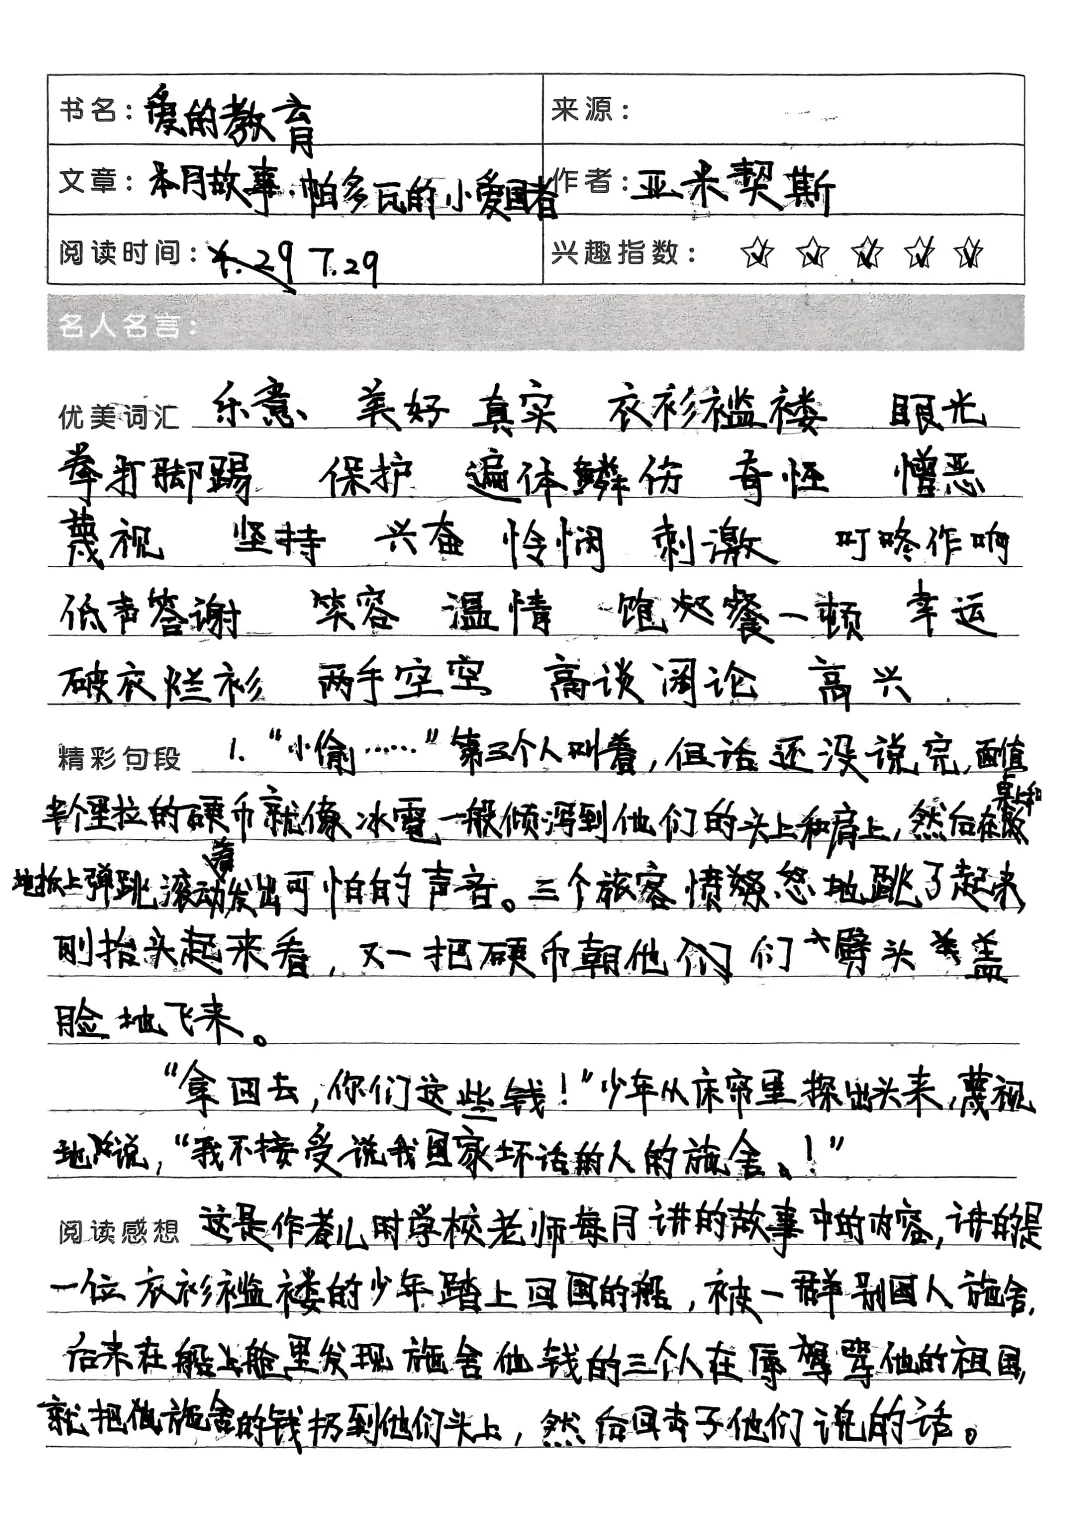 书名：爱的教育 来源：
文章：本月故事·帕多瓦的小爱国者 作者：亚米契斯
阅读时间：4.29 7.29 兴趣指数：☆☆☆☆☆
名人名言：
优美词汇 乐意 美好 真实 衣衫褴褛 眼光
拳打脚踢 保护 遍体鳞伤 奇怪 憎恶
蔑视 坚持 兴奋 怜悯 刺激 叮咚作响
低声答谢 笑容 温情 饱餐一顿 幸运
破衣烂衫 两手空空 高谈阔论 高兴
精彩句段 1. “小偷……”第三个人叫着，但话还没说完，面值
半个里拉的硬币就像冰雹一般倾泻到他们的头上和肩上，然后在桌上和
地板上弹跳滚动着发出可怕的声音。三个旅客愤怒地跳了起来，
刚抬头起来看，又一把硬币朝他们们劈头盖
脸地飞来。
“拿回去，你们这些钱！”少年从床帘里探出头来，蔑视
地说，“我不接受说我国家坏话的人的施舍！”
阅读感想 这是作者儿时学校老师每月讲的故事中的内容，讲的是
一位衣衫褴褛的少年踏上回国的船，被一群别国人施舍，
后来在船上舱里发现施舍他钱的三个人在辱骂他的祖国，
就把他施舍的钱扔到他们头上，然后回击了他们说的话。